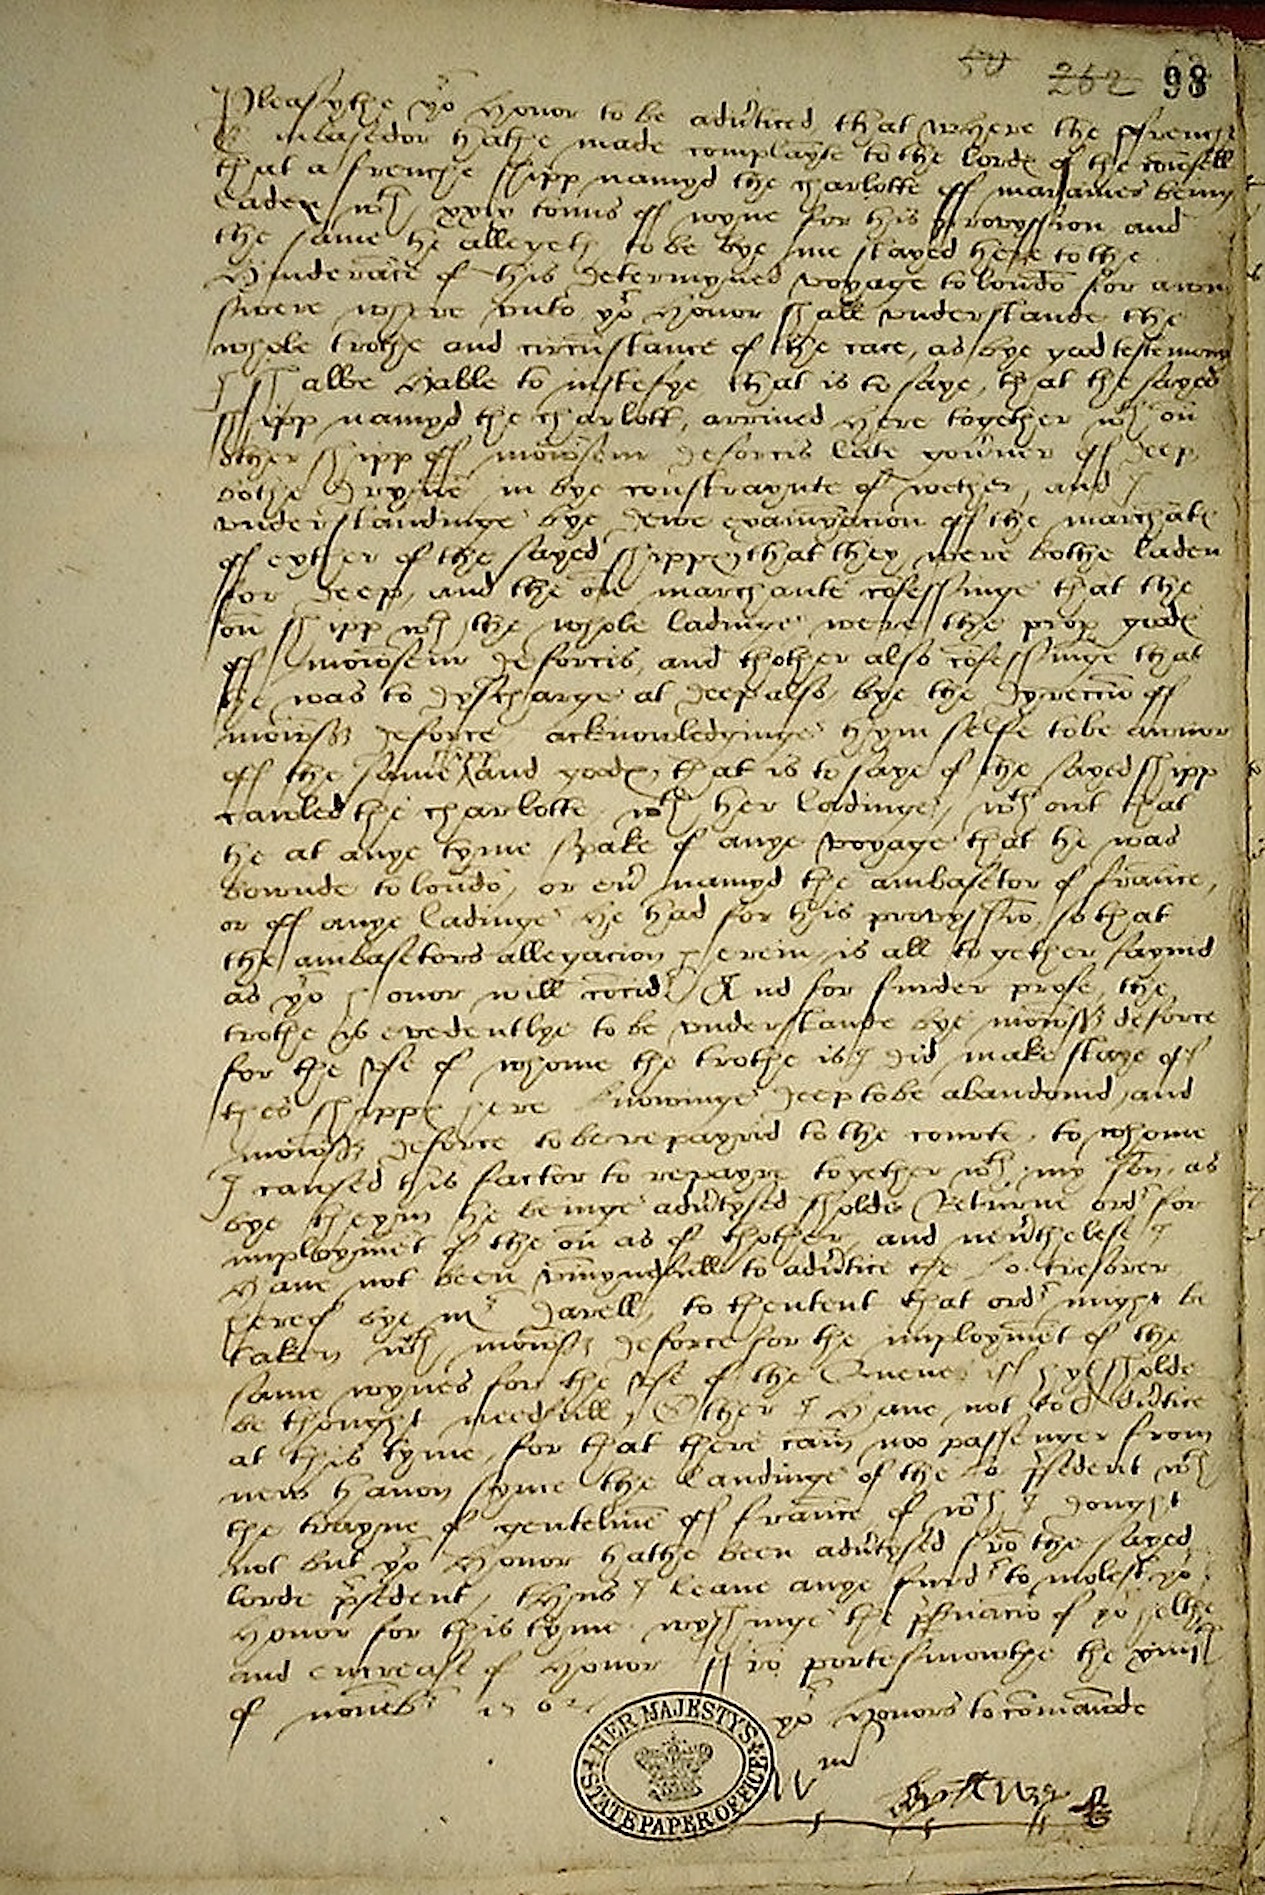 50 262 98
Pleasythe yor Honor to be advticed, that where the ffrenche
Embasedor hathe made complaynte to the lordes of the counsell
that a frenche shipp namyd the charlotte off marjames being
laden wth xxiv tonns off wyne for his provyssion and
the same he allegeth to be bye me stayed here to the
Hinderāce of this determyned voyage to londō for
swere where unto yor Honor shall understande the
whole trothe and circūstance of the cace, as bye good testemony
I shalbe hable to iustefye, that is to saye, that the sayed
shipp namyd the charlott, arrived here together wth on
other shipp off mownser deforcis late govner off deep
bothe dryvne in bye constraynte of wether, and I
understandinge bye dewe examynacion off the marchāts
off eyther of the sayed shippes that they were bothe laden
for deep, and the on marchante cōfessinge that the
on shipp wth the whole ladinge were the prop goodes
off mownser deforcis, and thother also cōfessinge that
he was to dyscharge at deep also bye the dyrecciō off
mowns deforce acknowledginge hym selfe to be awnor
off the same and goodes, that is to saye of the sayed shipp
cawled the charlotte wth her ladinge, wth owt that
he at anye tyme spake of anye voyage that he was
bownde to londō, or evr namyd the ambasetor of france,
or off anye ladinge he had for his provyssiō, so that
the ambasetors allegacion herein is all together faynid
as yor honor will cōcidr And for furder profe, the
trothe is evedentlye to be understande bye mowns deforce
for the use of whome the trothe is I did make staye off
thes shippes here knowinge deep to be abandonid, and
mowns deforce to be repayrid to the courte, to whome
I caused this factor to repayre together wth my son, as
bye theym he beinge advtysed sholde Returne ordr for
imploymēt of the on as of thother, and nevrthelese I
Have not been unmyndfull to advtice the Lo. tresorer
hereof bye mr Darell, to thentent that ordr might be
taken wth mowns deforce for the imploymēt of the
same wynes for the use of the Quene, if hyt sholde
be thought needfull, Other I Have not to advtice
at this tyme, for that there cam noo passenger from
new Haven syns the landinge of the Lo. prsedent wth
the trayne of gentelmē off france of wch I dought
not but yor Honor hathe been advtysed frō the sayed
lorde prsedent, thus I leave anye furdr to molest yor
Honor for this tyme wysshinge the prsvaciō of yor helthe
and encrease of Honor ffrō portesmowthe the
of novēbr 1562
yor Honors to cōmaunde
HER MAJESTY'S STATE PAPER OFFICE